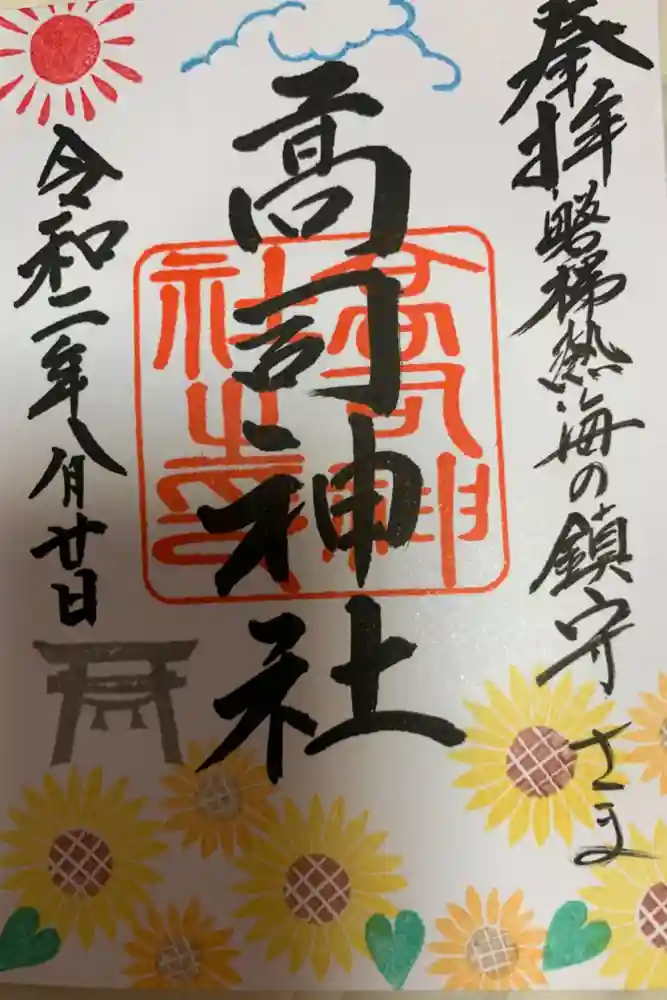 奉拝 磐梯熱海の鎮守さま
高司神社
高司神社之印
令和二年八月廿日